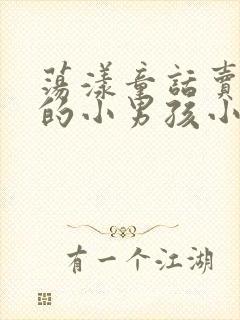 蕩漾童話賣
的小男孩小
有一个江湖